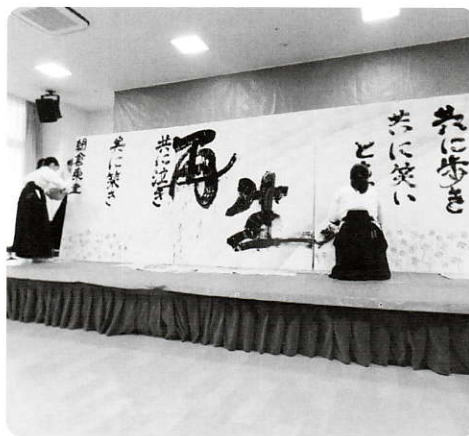 共に歩き
共に笑い
と
再生
共に泣き
共に築き
朝倉東